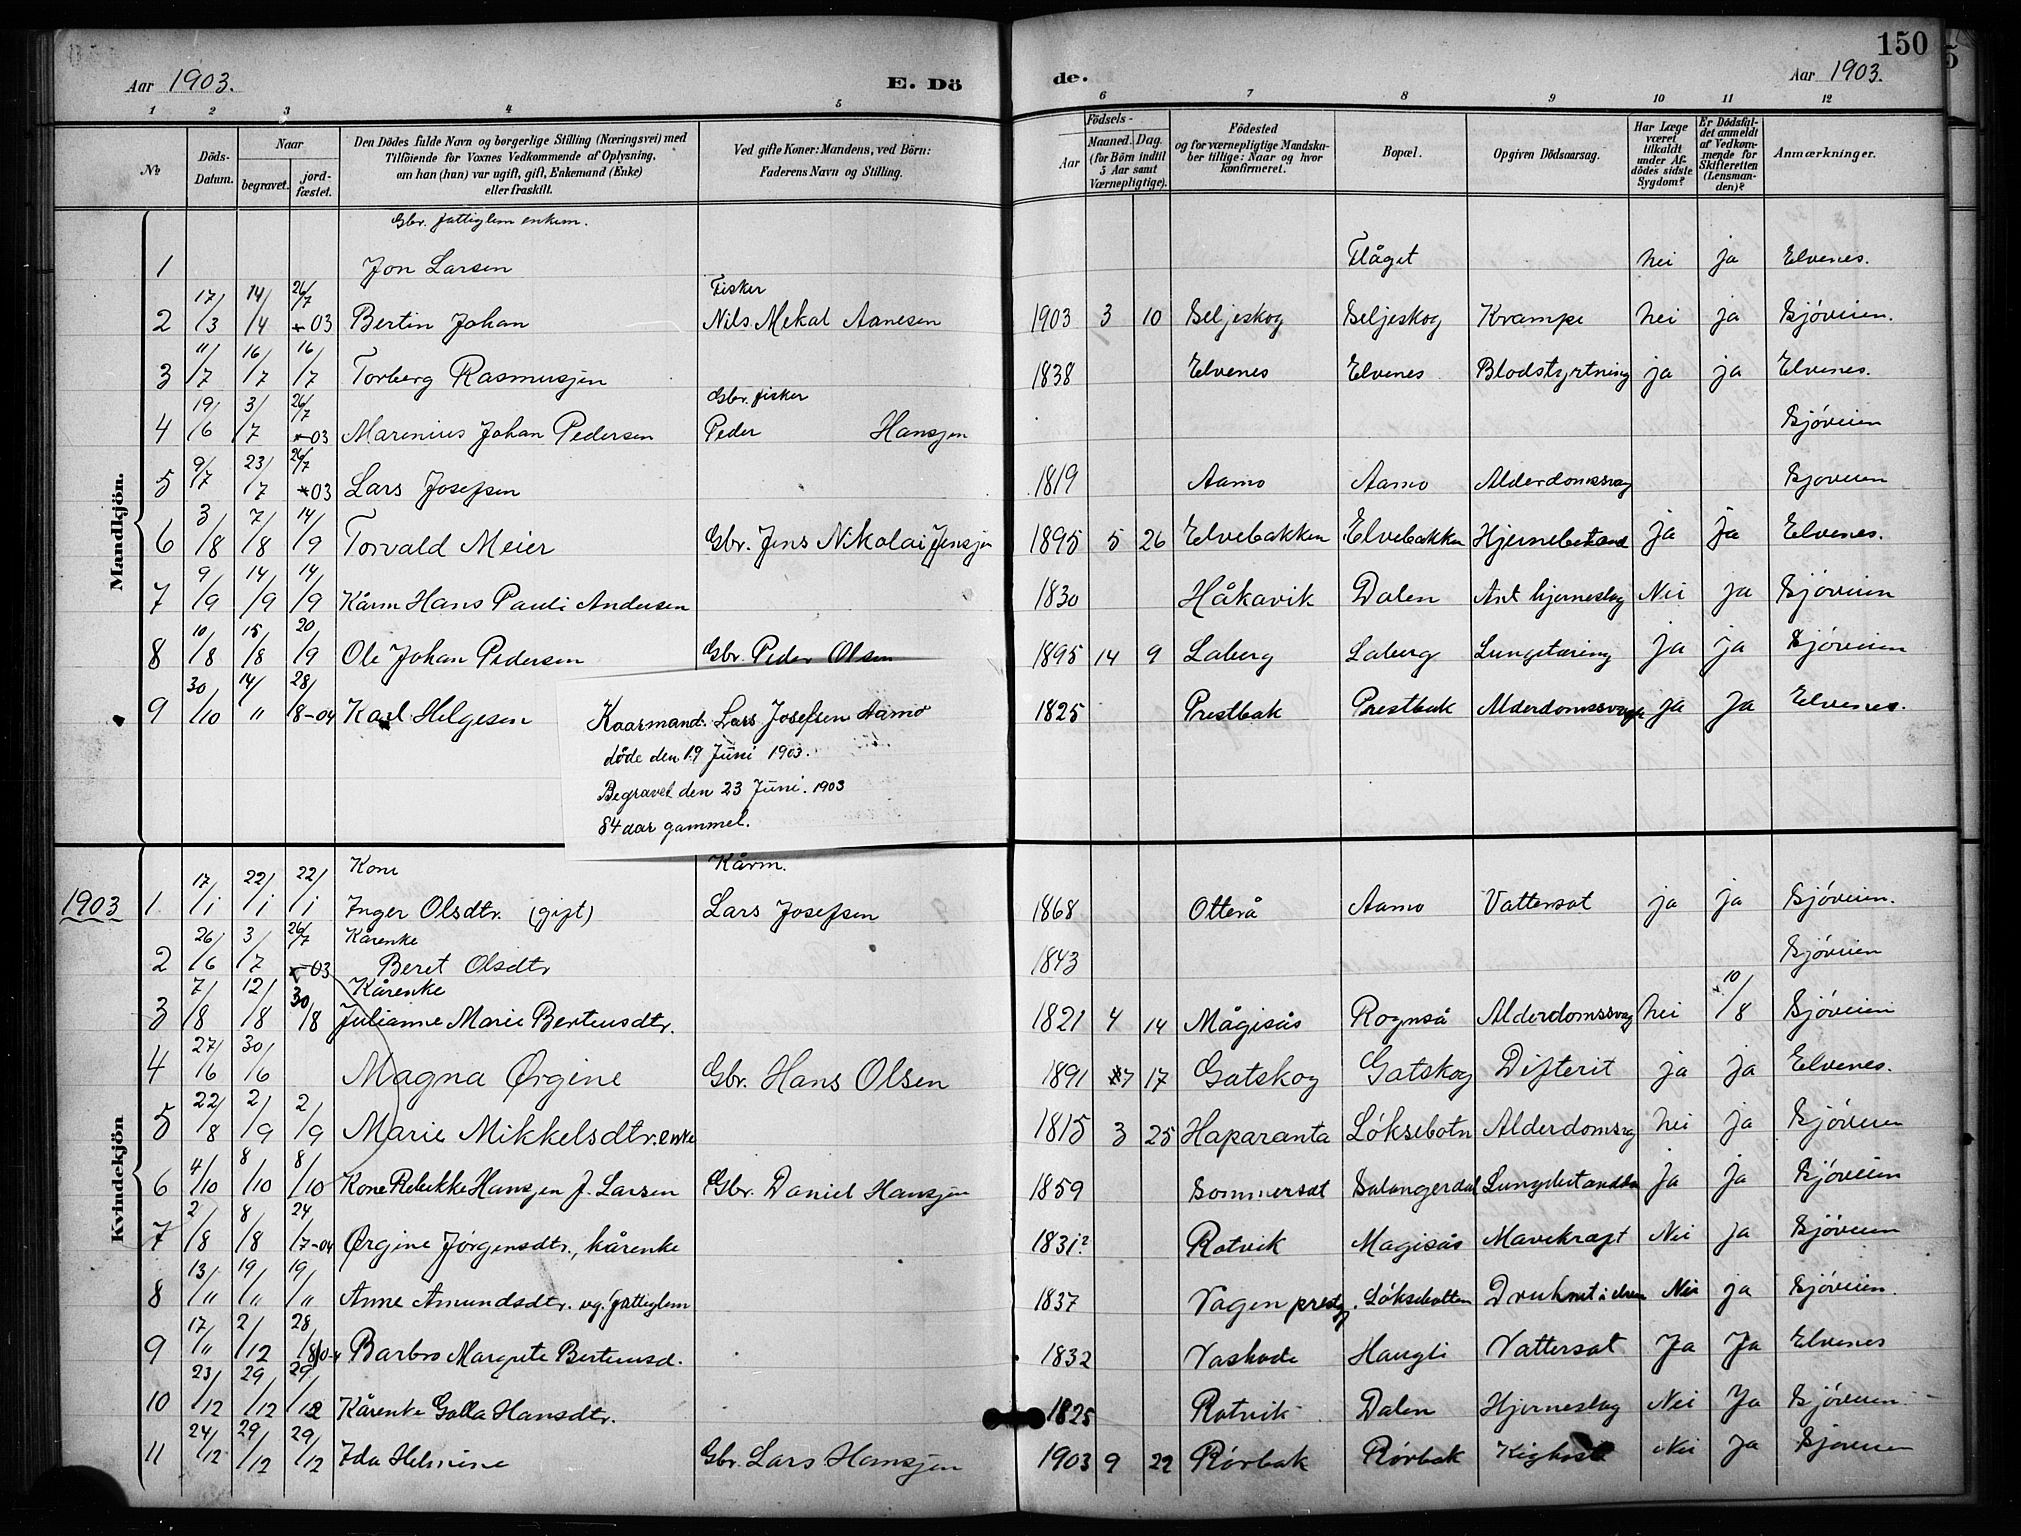 150
Aar 1903.
E. Döde.
Aar 1903.
1 2 3 4 5 6 7 8 9 10 11 12
No
Döds-Datum.
Naar
begravet.
jord-fæstet.
Den Dödes fulde Navn og borgerlige Stilling (Næringsvei) med
Tilföiende for Voxnes Vedkommende af Oplysning,
om han (hun) var ugift, gift, Enkemand (Enke)
eller fraskilt.
Ved gifte Koner: Mandens, ved Börn:
Faderens Navn og Stilling.
Födsels-
Aar
Maaned. Dag.
(for Börn indtil
5 Aar samt
Værnepligtige).
Födested
og for værnepligtige Mandska-
ber tillige: Naar og hvor
konfirmeret.
Bopæl.
Opgiven Dödsaarsag.
Har Læge
været
tilkaldt
under Af-
dödes sidste
Sygdom?
Er Dödsfal-
det anmeldt
af Vedkom-
mende for
Skifteretten
(Lensman-
den)?
Anmærkninger.
Mandkjön.
Gbr. fattiglem enkem.
1 Jon Larsen Flåget nei ja Elvenes.
Fisker
2 17/3 14/4 26/7 -03 Bertin Johan Nils Mekal Aanesen 1903 3 10 Seljeskog Seljeskog Krampe nei ja Sjøveien.
3 11/7 16/7 16/7 Torberg Rasmussen 1838 Elvenes Elvenes Blodstyrtning ja ja Elvenes.
Gbr. fisker
4 19/6 3/7 26/7 -03 Marenius Johan Pedersen Peder Hanssen Sjøveien
5 9/7 23/7 26/7 03 Lars Josefsen 1819 Aamo Aamo Alderdomssvag Sjøveien
6 3/8 7/8 14/9 Torvald Meier Gbr. Jens Nikolai Jenssen 1895 5 26 Elvebakken Elvebakken Hjernebetænd ja ja Elvenes.
7 9/9 14/9 14/9 Kårm Hans Pauli Andersen 1830 Håkavik Dalen Ant hjerneslag Nei ja Sjøveien
8 10/8 15/8 20/9 Ole Johan Pedersen Gbr. Peder Olsen 1895 14 9 Laberg Laberg Lungetæring ja ja Sjøveien
9 30/10 14/" 28/8-04 Karl Helgesen 1825 Prestbak Prestbak Alderdomssvag ja Ja Elvenes.
Kaarmand. Lars Josefsen Aamo
døde den 19 Juni 1903.
Begravet den 23 Juni. 1903
84 aar gammel.
Kvindekjön
1903
Kone Kårm.
1 17/1 22/1 22/1 Inger Olsdtr. (gift) Lars Josefsen 1868 Otterå Aamo Vattersot ja ja Sjøveien.
Kårenke
2 26/6 3/7 26/7 -03 Beret Olsdtr 1843 Sjøveien
Kårenke
3 7/8 12/8 30/8 Julianne Marie Berteusdtr. 1821 4 14 Mågisås Rognså Alderdomssvag nei 10/8 Sjøveien
4 27/6 30/6 Magna Ørgine Gbr. Hans Olsen 1891 7 17 Gatskog Gatskog Difterit ja ja Elvenes.
5 22/8 2/9 2/9 Marie Mikkelsdtr. enke 1815 3 25 Haparanta Løksebotn Alderdomsvg nei ja Sjøveien
6 4/10 8/10 8/10 Kone Rebekke Hansen f. Larsen Gbr. Daniel Hanssen 1859 Sommersæt Salangerdal ja ja Sjøveien
7 2/8 8/8 24/7-04 Ørgine Jørgensdtr., kårenke 1831? Rotvik Magisås Mavekræft Nei ja Sjøveien
8 13/" 19/" 19/" Anne Amundsdtr. ug. fattiglem 1837 Vagen prestg. Løksebotten Druknet i elven Nei ja Sjøveien.
9 17/" 2/12 28/8 04 Barbro Margrete Berteusd. 1832 Haugli Vattersot Ja Ja Elvenes
10 23/12 29/12 29/12 Kårenke Golla Hansdtr. 1825 Rotvik Dalen Hjerneslag Nei Ja Sjøveien
11 24/12 29/12 29/12 Ida Helmine Gbr. Lars Hansjen 1903 9 22 Rørbak Rørbak Kighoste Nei Ja Sjøveien